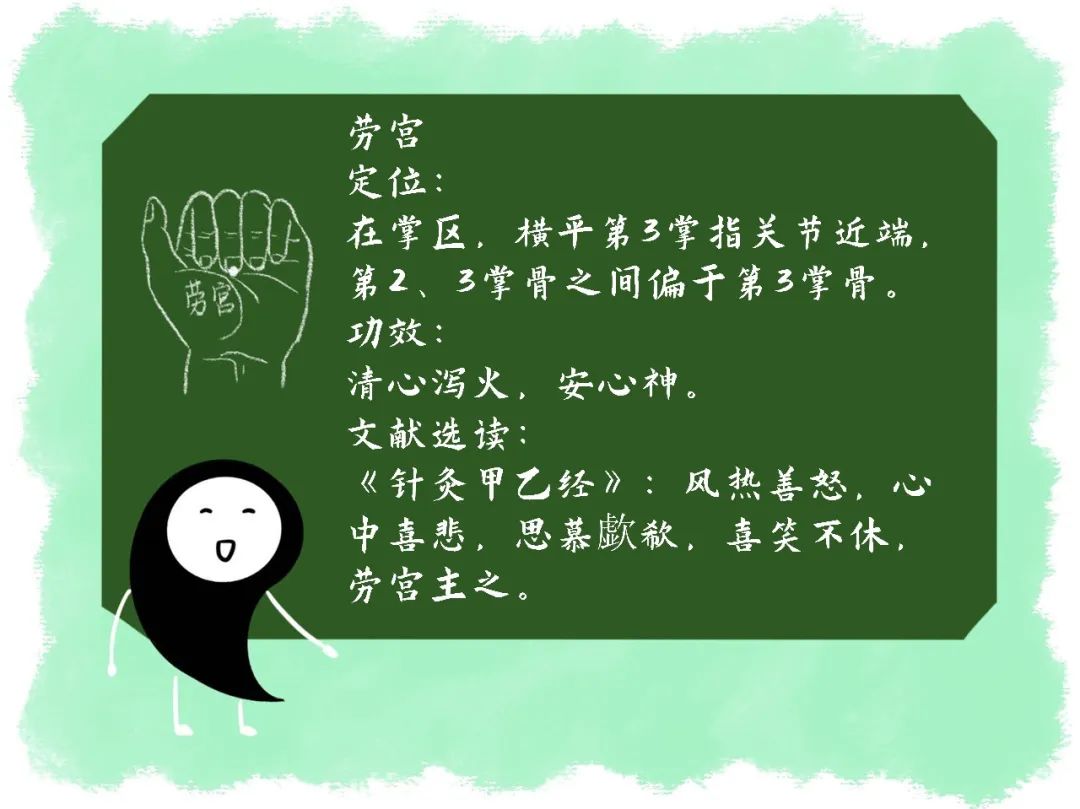 劳宫
劳宫
定位：
在掌区，横平第3掌指关节近端，
第2、3掌骨之间偏于第3掌骨。
功效：
清心泻火，安心神。
文献选读：
《针灸甲乙经》：风热善怒，心
中喜悲，思慕歔欷，喜笑不休，
劳宫主之。